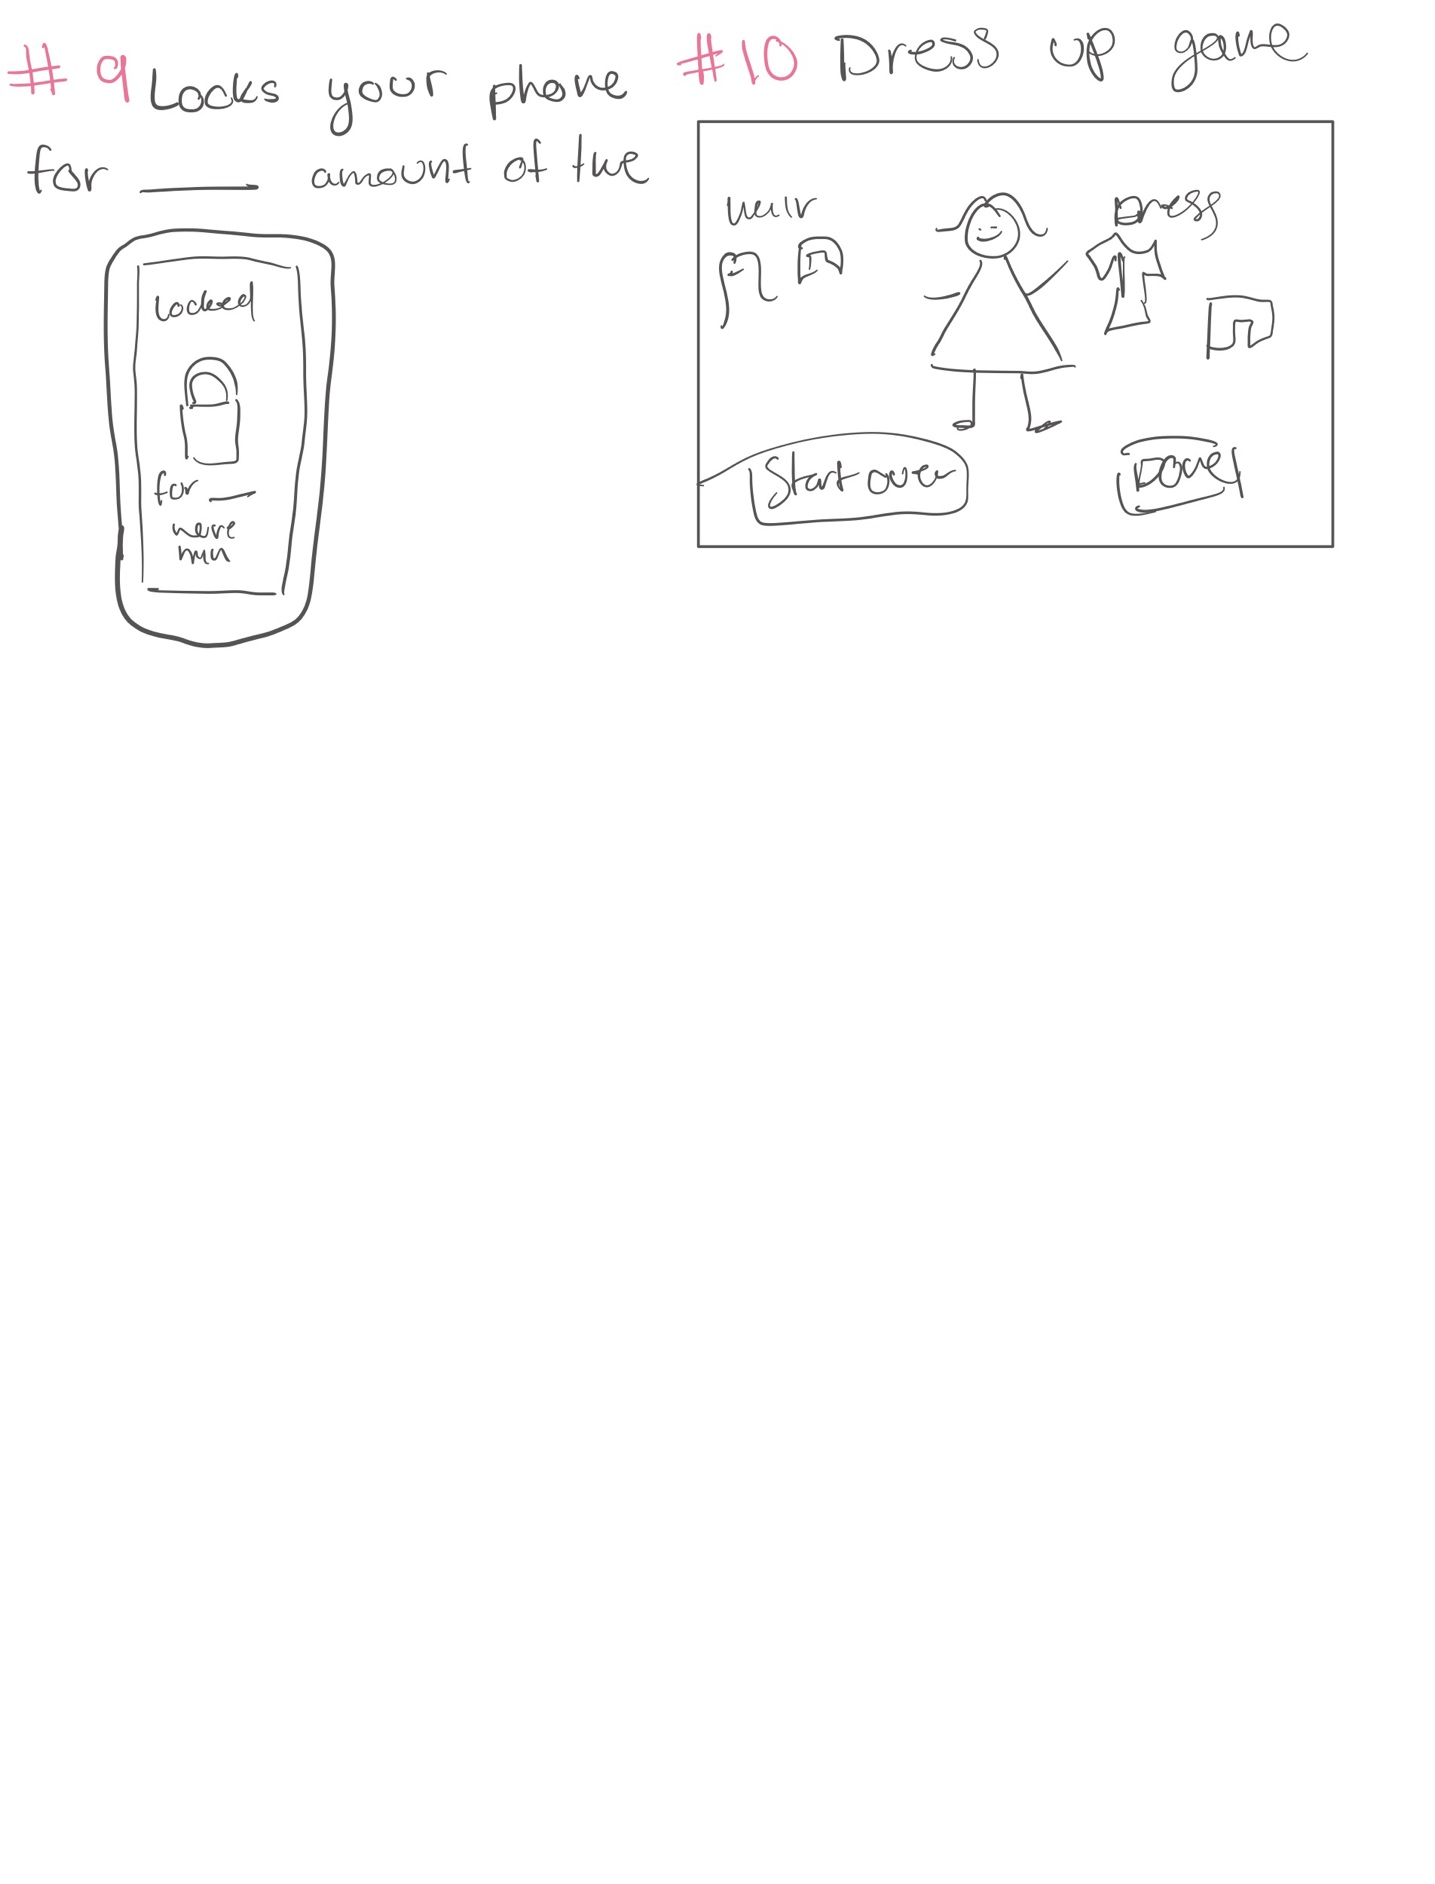 #9 Locks your phone
for ____ amount of time
Locked
for __
more
min
#10 Dress up game
Hair
Dress
Start over
Done